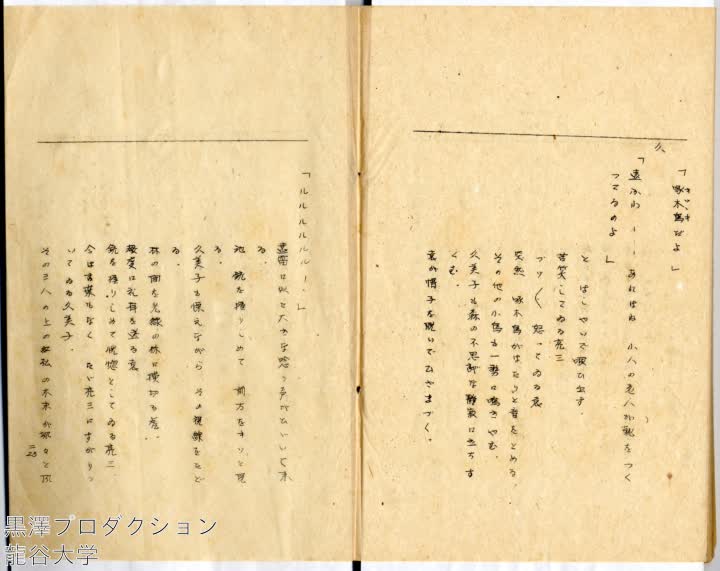 「啄木鳥だよ」
キツツキ
久、
「違ふわ ーー あれはね 小人の老人が靴をつく
つてゐるのよ」
と はしやいで唄ひ出す。
苦笑してゐる亮三
ブツ〱 怒つてゐる
突然 啄木鳥がはたりと音をとめる。
その他の小鳥も一斉に鳴きやむ。
久美子も森の不思議な静寂に立ちす
くむ。
の様子を覗いてひざまづく。
「ルルルルルル……」
に似た大きな唸り声がひゞいて来
る。
池 銃を握りしめて 前方をキツと見
る。
久美子も怯えながら その視線をたど
る。
林の間を光線の様に横切る
銃を握りしめて恍惚としてゐる亮三。
今は言葉もなく たゞ亮三にすがりつ
いてゐる久美子。
その三人の上の 木末が
二25
黒澤プロダクション
龍谷大学